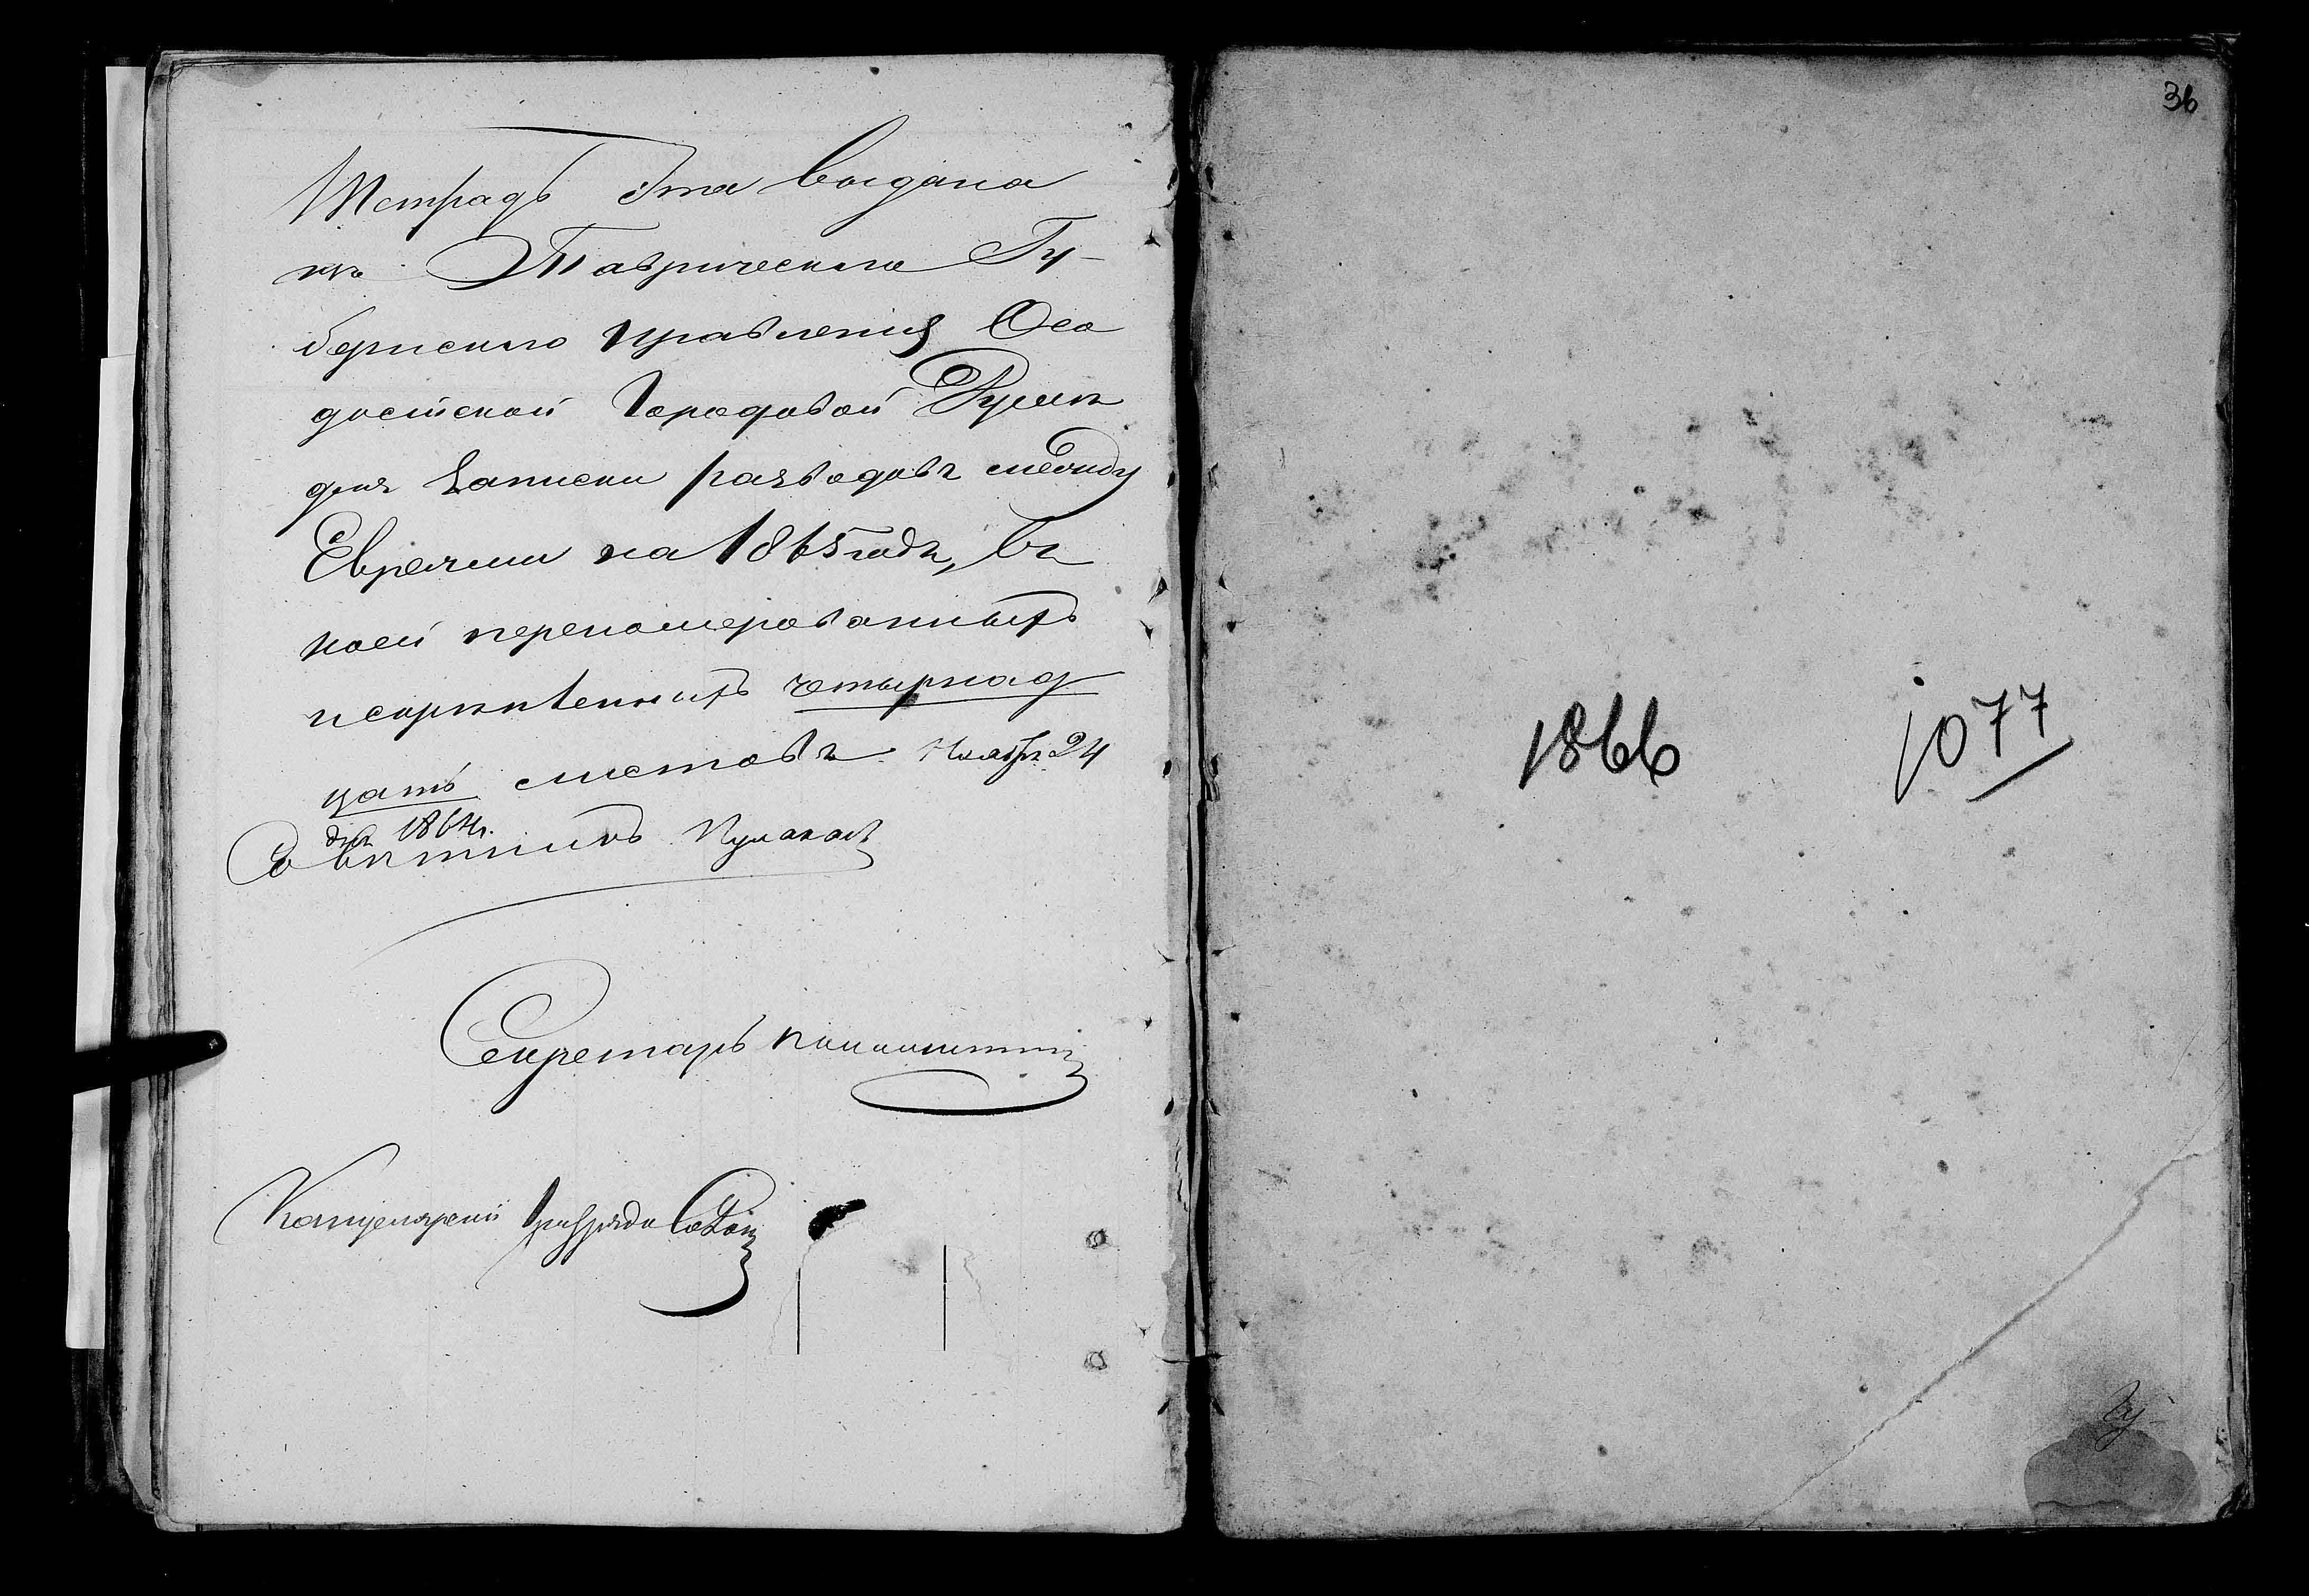 Тетрадь эта выдана
изъ Таврическаго Гу-
бернскаго правленія Ѳео
досійской Городовой Думѣ
для записки разводовъ между
Евреями на 1865 годъ, въ
коей переномерованныхъ
и скрѣпленныхъ четырнад
цать листовъ. Ноября 24
дня 1864 г.
Совѣтникъ
Секретарь
Канцелярскій
36
1866
1077